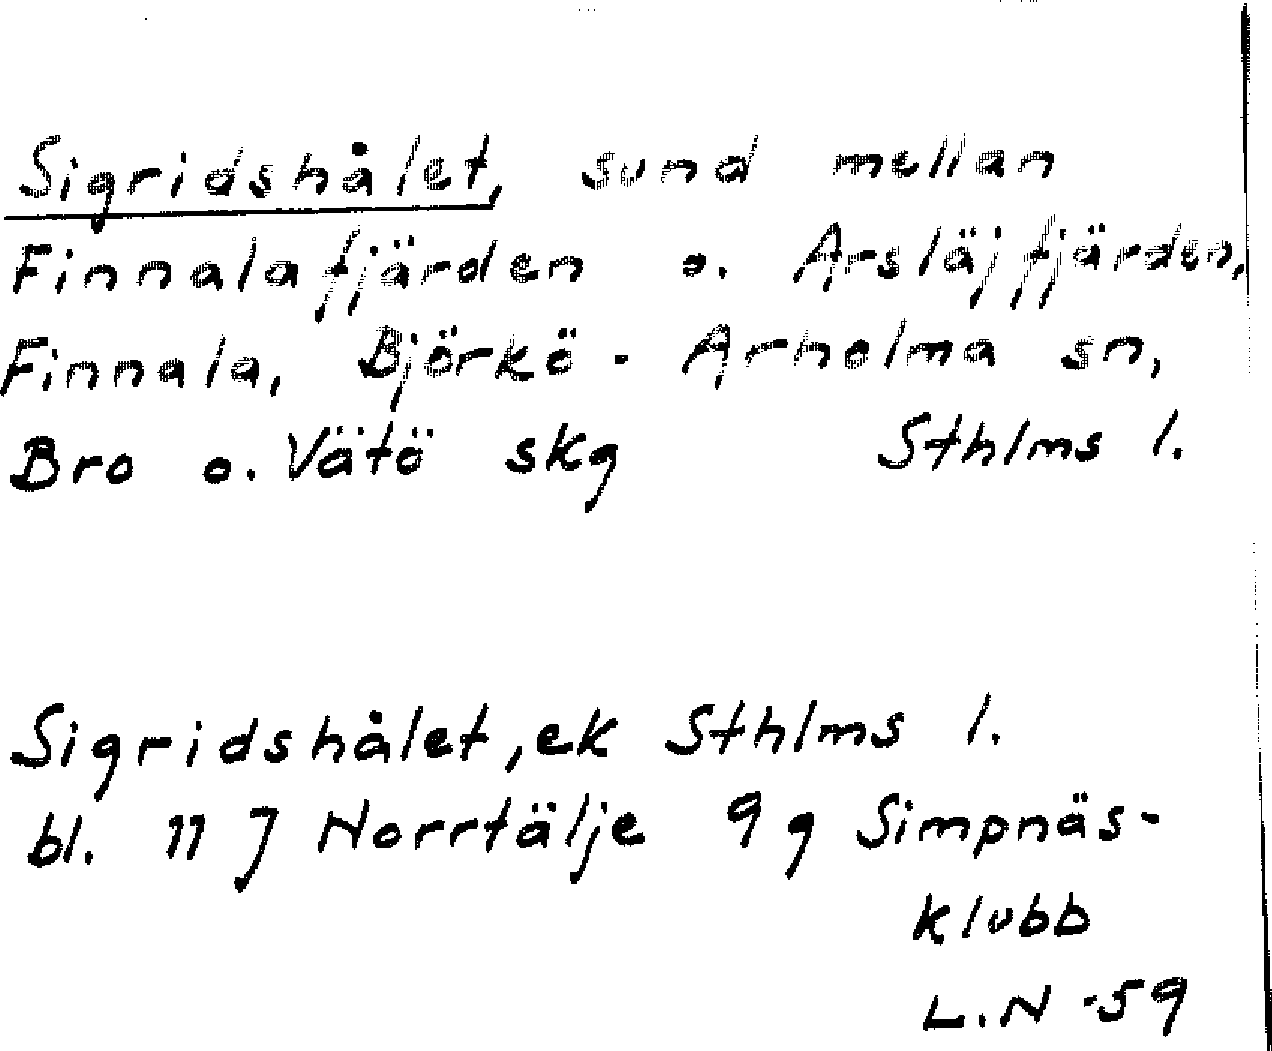 Sigridshålet, sund mellan
Finnalafjärden o. Arsläjfjärden,
Finnala, Björkö - Arholma sn,
Bro o. Vätö skg Sthlms l.
Sigridshålet, ek Sthlms l.
bl. 11 J Norrtälje 9 g Simpnäs-
klubb
L.N -59